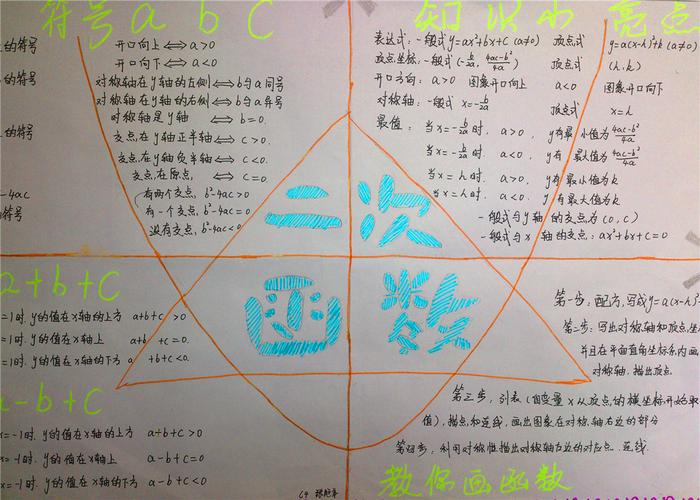 符号 a b c
的符号 开口向上 ⟺ a>0
开口向下 ⟺ a<0
的符号 对称轴在y轴的左侧 ⟺ b与a同号
对称轴在y轴的右侧 ⟺ b与a异号
对称轴是y轴 ⟺ b=0.
的符号 交点在y轴正半轴 ⟺ c>0.
交点在y轴负半轴 ⟺ c<0.
交点在原点, ⟺ c=0.
-4ac 有两个交点, b²-4ac>0
符号 有一个交点, b²-4ac=0
没有交点, b²-4ac<0
知识 亮点
表达式: 一般式 y=ax²+bx+c (a≠0) 顶点式 y=a(x-h)²+k (a≠0)
顶点坐标: 一般式 (-b/2a, 4ac-b²/4a) 顶点式 (h.k)
开口方向: a>0 图象开口向上 a<0 图象开口向下
对称轴: 一般式 x=-b/2a 顶点式 x=h
最值: 当x=-b/2a时. a>0, y有最小值为4ac-b²/4a
当x=-b/2a时. a<0, y有最大值为4ac-b²/4a
当x=h时. a>0, y有最小值为k
当x=h时. a<0. y有最大值为k
一般式与y轴的交点为(0,c)
一般式与x轴的交点: ax²+bx+c=0
二次
函数
a+b+c
=1时. y的值在x轴的上方 a+b+c>0
=1时. y的值在x轴上 a+b+c=0.
=1时. y的值在x轴的下方 a+b+c<0.
a-b+c
x=-1时. y的值在x轴的上方 a-b+c>0
x=-1时. y的值在x轴上 a-b+c=0
x=-1时. y的值在x轴的下方 a-b+c<0
第一步: 配方, 写成y=a(x-h)²
第二步: 写出对称轴和顶点坐
并且在平面直角坐标系内画
对称轴. 描出顶点.
第三步, 列表(自变量x从顶点的横坐标开始取
值), 描点和连线, 画出图象在对称轴右边的部分
第四步, 利用对称性描出对称轴左边的对应点. 连线.
教你画函数